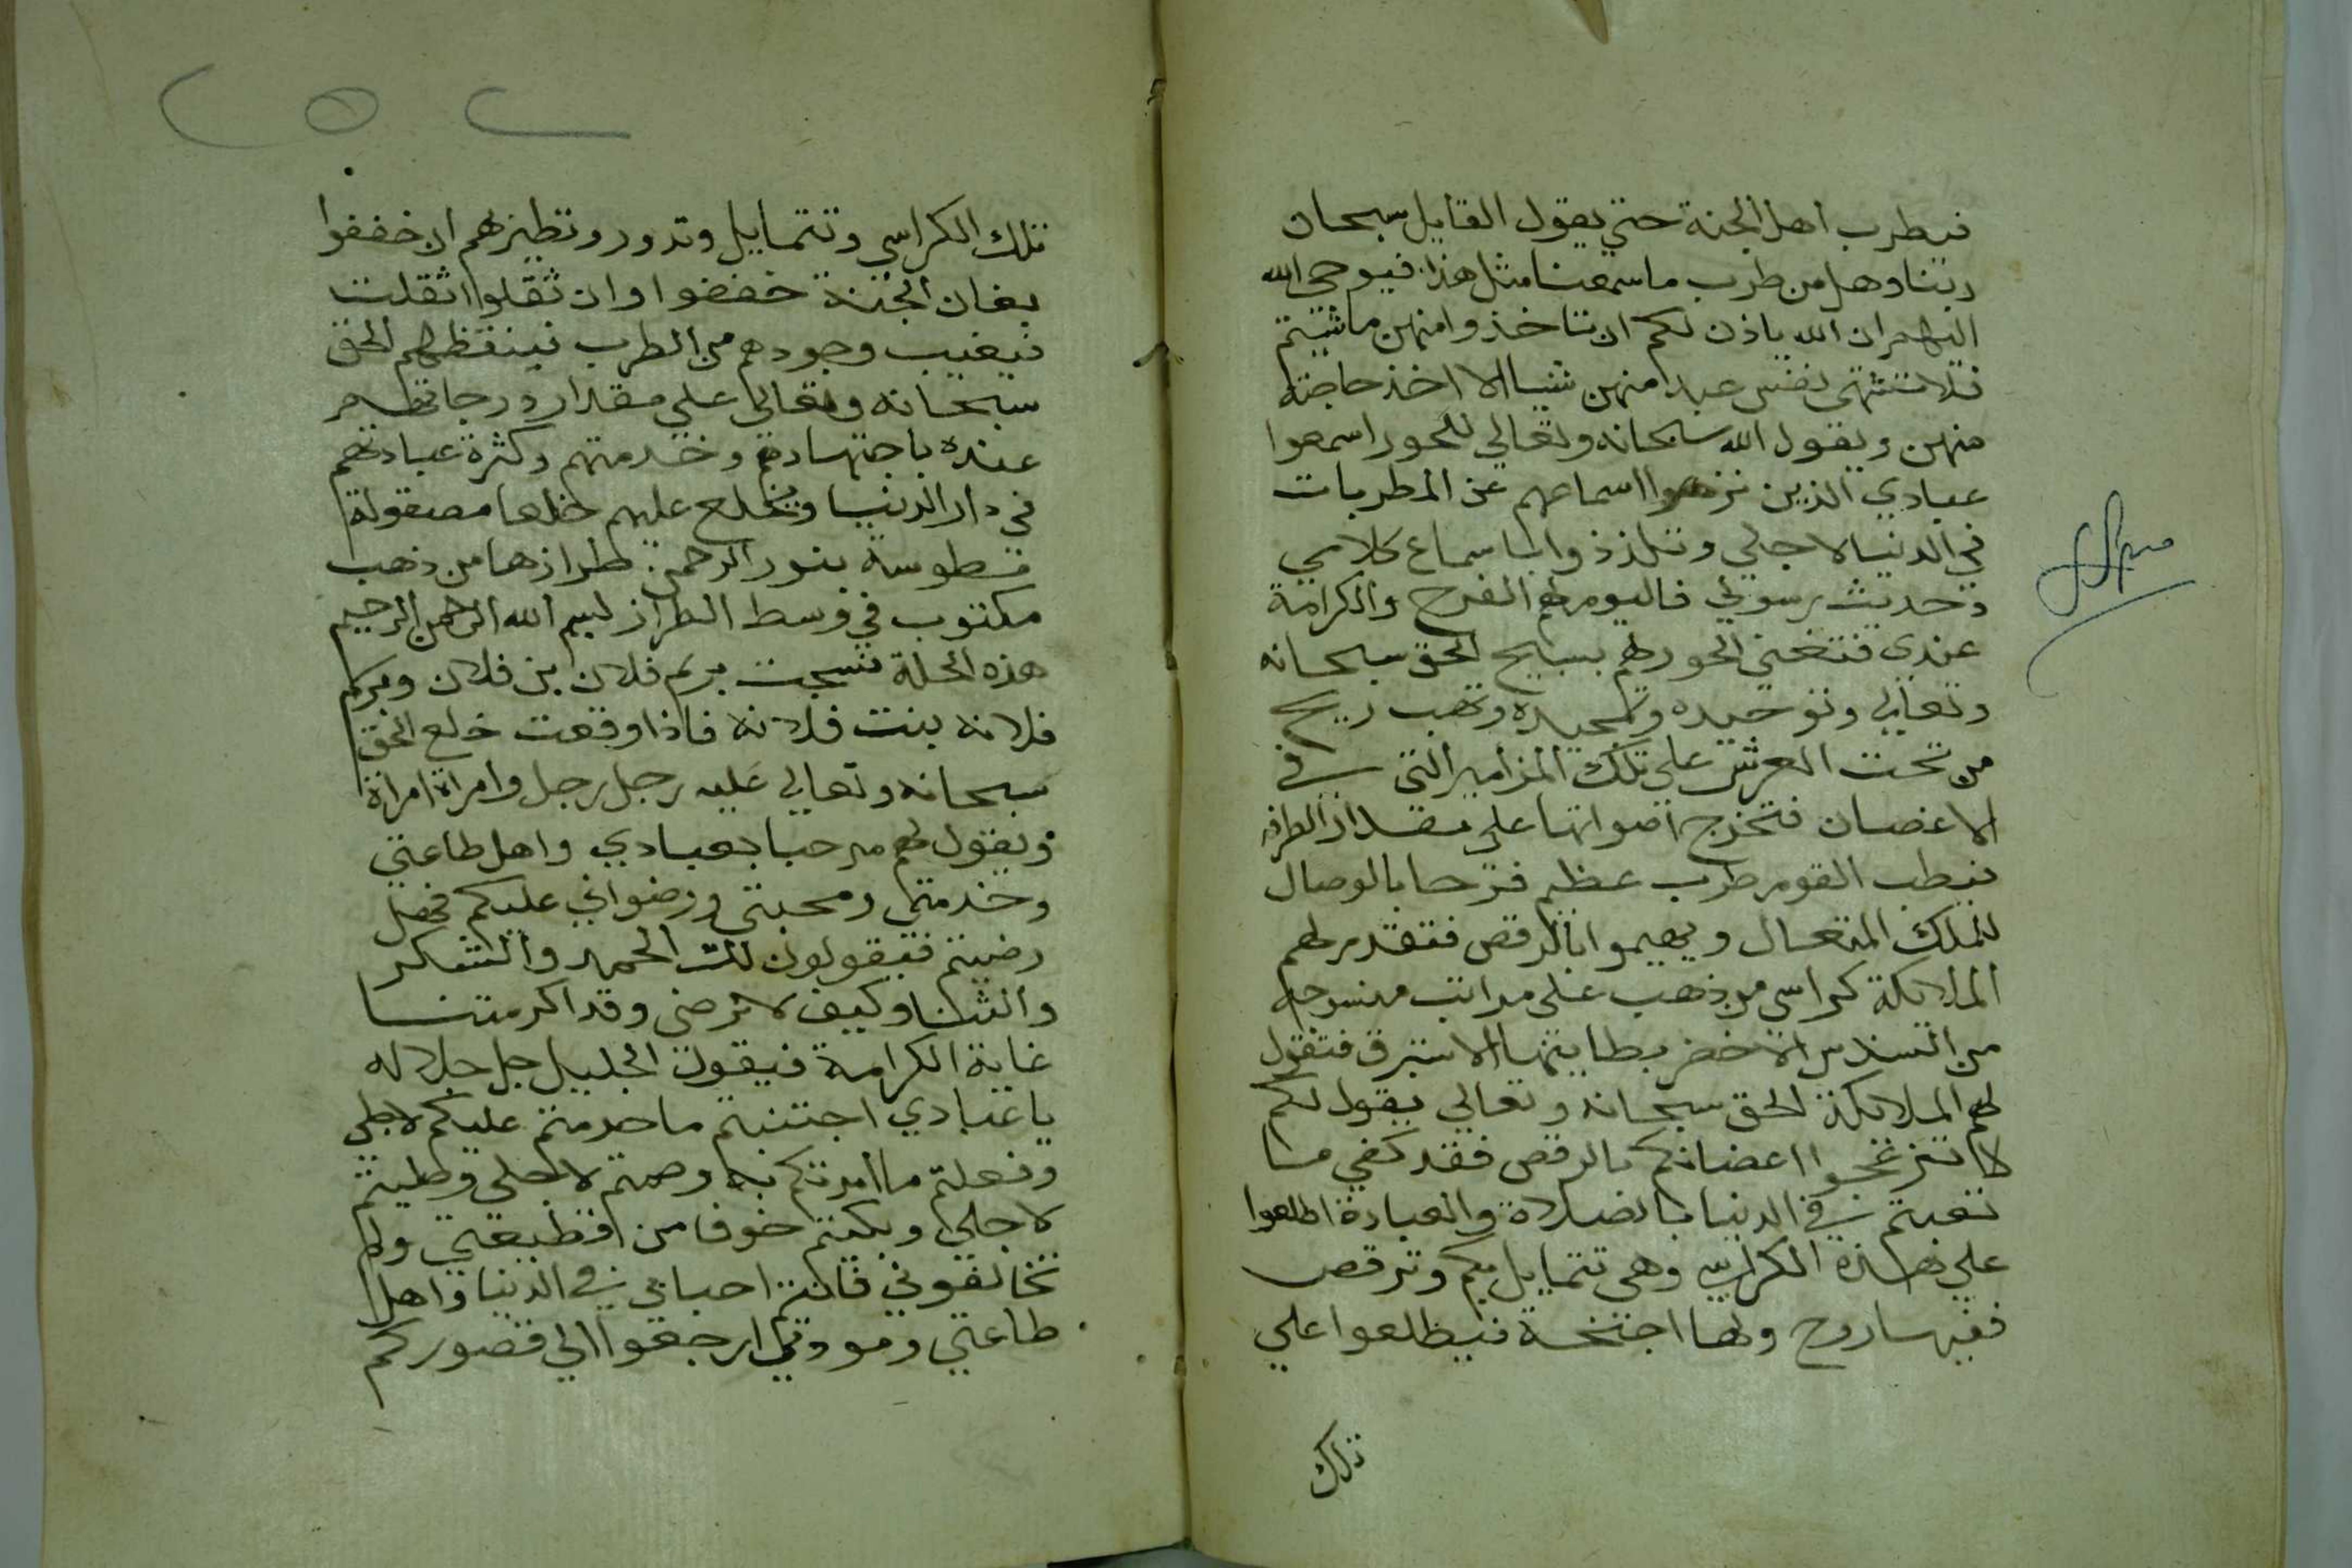 فيطرب اهل الجنة حتي يقول القايل سبحان
ربنا وهل من طرب ما سمعنا مثل هذا فيوحي الله
اليهم ان الله ياذن لكم ان تاخذوا منهن ما شيتم
فلا تشتهي نفس عبدا منهن شيا الا اخذ حاجته
منهن ويقول الله سبحانه وتعالي للحور اسمعوا
عبادي الذين نزهوا اسماعهم عن المطربات
في الدنيا لاجلي وتلذذوا بسماع كلامي
وحديث رسولي فاليوم لهم الفرح والكرامة
عندي فتغني الحور لهم بسبيح الحق سبحانه
وتعالي وتوحيده وتمجيده وتهب ريح
من تحت العرش علي تلك المزامير التي في
الاغصان فتخرج اصواتها علي مقدار الطرب
فيطب القوم طرب عظيم فرحا بالوصال
للملك المتعال ويهيموا بالرقص فتقدم لهم
الملايكة كراسي من ذهب علي مراتب منسوجه
من السندس الاخضر بطاينتها الاستبرق فتقول
لهم الملايكة الحق سبحانه وتعالي يقول لكم
لا تنزعجوا اعضايكم بالرقص فقد كفي ما
تعبتم في الدنيا بالصلاة والعبادة اطلعوا
علي هذه الكراسي وهي تتمايل بكم وترقص
ففيها روح ولها اجنحة فيطلعوا علي
تلك
تلك الكراسي وتتمايل وتدور وتطيربهم ان خففوا
بغان الجنة خففوا وان ثقلوا اثقلت
فيغيب وجودهم من الطرب فينقظهم الحق
سبحانه وتعالي علي مقدار درجاتهم
عنده باجتهادهم وخدمتهم وكثرة عبادتهم
في دار الدنيا ويخلع عليهم خلعا مصقولة
مطوسة بنور الرحمن طرازها من ذهب
مكتوب في وسط الطراز بسم الله الرحمن الرحيم
هذه الحلة نسجت برسم فلان بن فلان وبرسم
فلانه بنت فلانه فاذا وقعت خلع الحق
سبحانه وتعالي عليه رجل رجل وامراة امراة
ويقول لهم مرحبا بعبادي واهل طاعتي
وخدمتي ومحبتي ورضواني عليكم فهل
رضيتم فيقولون لك الحمد والشكر
والثنا وكيف لا نرضي وقد اكرمتنا
غاية الكرامة فيقول الجليل جل جلاله
يا عبادي اجتنبتم ما حرمتم عليكم لاجلي
وفعلتم ما امرتكم به وصمتم لاجلي وصليتم
لاجلي وبكيتم خوفا من قطيعتي ولم
تخالفوني فانتم احبابي في الدنيا واهل
طاعتي ومودتي ارجعوا الي قصوركم